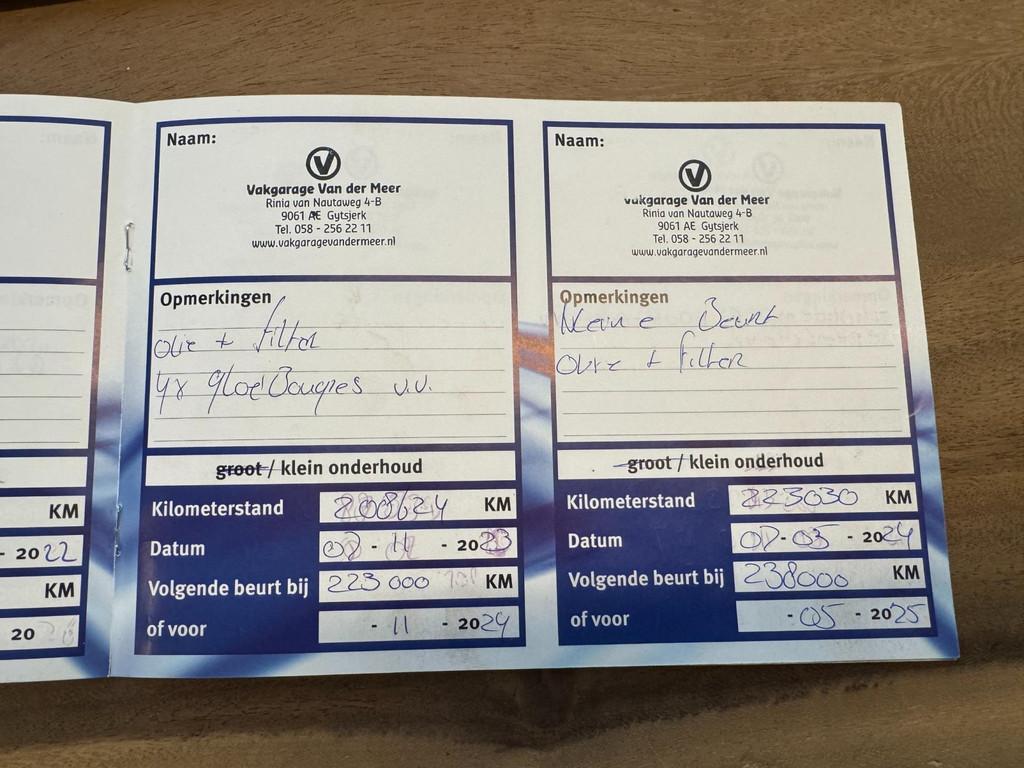 KM
- 2022
KM
20
Naam:
Vakgarage Van der Meer
Rinia van Nautaweg 4-B
9061 AE Gytsjerk
Tel. 058 - 256 22 11
www.vakgaragevandermeer.nl
Opmerkingen
olie + filter
4x gloeibougies v.v.
groot / klein onderhoud
Kilometerstand 208624 KM
Datum - 11 - 2023
Volgende beurt bij 223 000 KM
of voor - 11 - 2024
Naam:
Vakgarage Van der Meer
Rinia van Nautaweg 4-B
9061 AE Gytsjerk
Tel. 058 - 256 22 11
www.vakgaragevandermeer.nl
Opmerkingen
Kleine Beurt
olie + filter
groot / klein onderhoud
Kilometerstand 223030 KM
Datum 07-05 - 2024
Volgende beurt bij 238000 KM
of voor - 05 - 2025